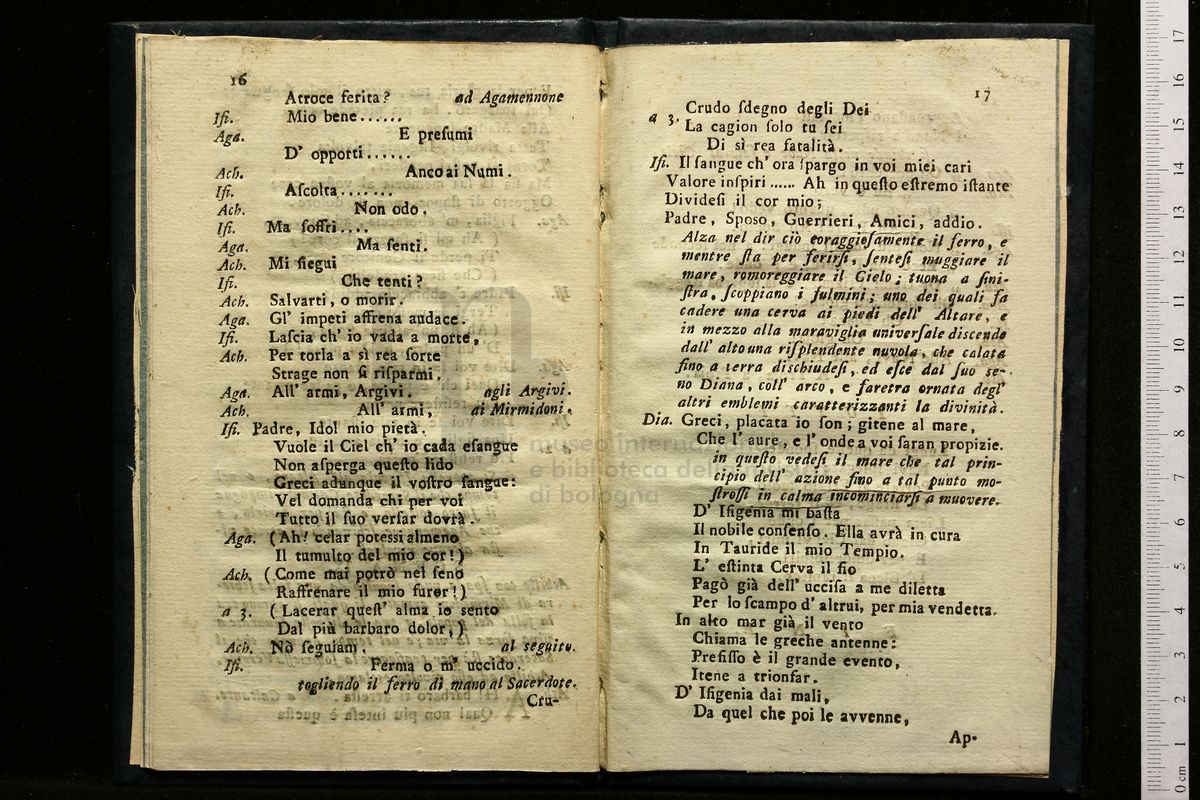 16
Atroce ferita? ad Agamennone
Ifi. Mio bene......
Aga. E preſumi
D' opporti......
Ach. Anco ai Numi.
Ifi. Aſcolta........
Ach. Non odo.
Ifi. Ma ſoffri....
Aga. Ma ſenti.
Ach. Mi ſiegui
Ifi. Che tenti?
Ach. Salvarti, o morir.
Aga. Gl' impeti affrena audace.
Ifi. Laſcia ch' io vada a morte,
Ach. Per torla a sì rea ſorte
Strage non ſi riſparmi.
Aga. All' armi, Argivi. agli Argivi.
Ach. All' armi, ai Mirmidoni.
Ifi. Padre, Idol mio pietà.
Vuole il Ciel ch' io cada eſangue
Non aſperga queſto lido
Greci adunque il voſtro ſangue:
Vel domanda chi per voi
Tutto il ſuo verſar dovrà.
Aga. (Ah! celar poteſſi almeno
Il tumulto del mio cor!)
Ach. (Come mai potrò nel ſeno
Raffrenare il mio furor!)
a 3. (Lacerar queſt' alma io sento
Dal più barbaro dolor,)
Ach. Nò ſeguiam. al seguito.
Ifi. Ferma o m' uccido.
togliendo il ferro di mano al Sacerdote.
Cru-
17
Crudo ſdegno degli Dei
a 3. La cagion ſolo tu ſei
Di sì rea fatalità.
Ifi. Il ſangue ch' ora ſpargo in voi miei cari
Valore inſpiri...... Ah in queſto eſtremo iſtante
Divideſi il cor mio;
Padre, Sposo, Guerrieri, Amici, addio.
Alza nel dir ciò coraggioſamente il ferro, e
mentre ſta per ferirſi, ſenteſi muggiare il
mare, romoreggiare il Cielo; tuona a ſini-
ſtra, ſcoppiano i fulmini; uno dei quali fa
cadere una cerva ai piedi dell' Altare, e
in mezzo alla maraviglia univerſale discende
dall' alto una riſplendente nuvola, che calata
fino a terra dischiudeſi, ed eſce dal ſuo se-
no Diana, coll' arco, e faretra ornata degl'
altri emblemi caratterizzanti la divinità.
Dia. Greci, placata io ſon; gitene al mare,
Che l' aure, e l' onde a voi ſaran propizie.
in queſto vedeſi il mare che tal prin-
cipio dell' azione fino a tal punto mo-
ſtroſſi in calma incominciarſi a muovere.
D' Ifigenia mi baſta
Il nobile conſenſo. Ella avrà in cura
In Tauride il mio Tempio.
L' eſtinta Cerva il fio
Pagò già dell' ucciſa a me diletta
Per lo ſcampo d' altrui, per mia vendetta.
In alto mar già il vento
Chiama le greche antenne:
Prefiſſo è il grande evento,
Itene a trionfar.
D' Ifigenia dai mali,
Da quel che poi le avvenne,
Ap-
museo interna
e biblioteca della
di bologna